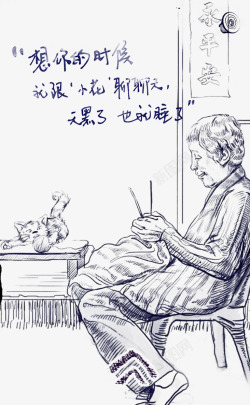 “想你的时候
就跟‘小花’聊聊天，
天黑了 也就睡了”
永平安